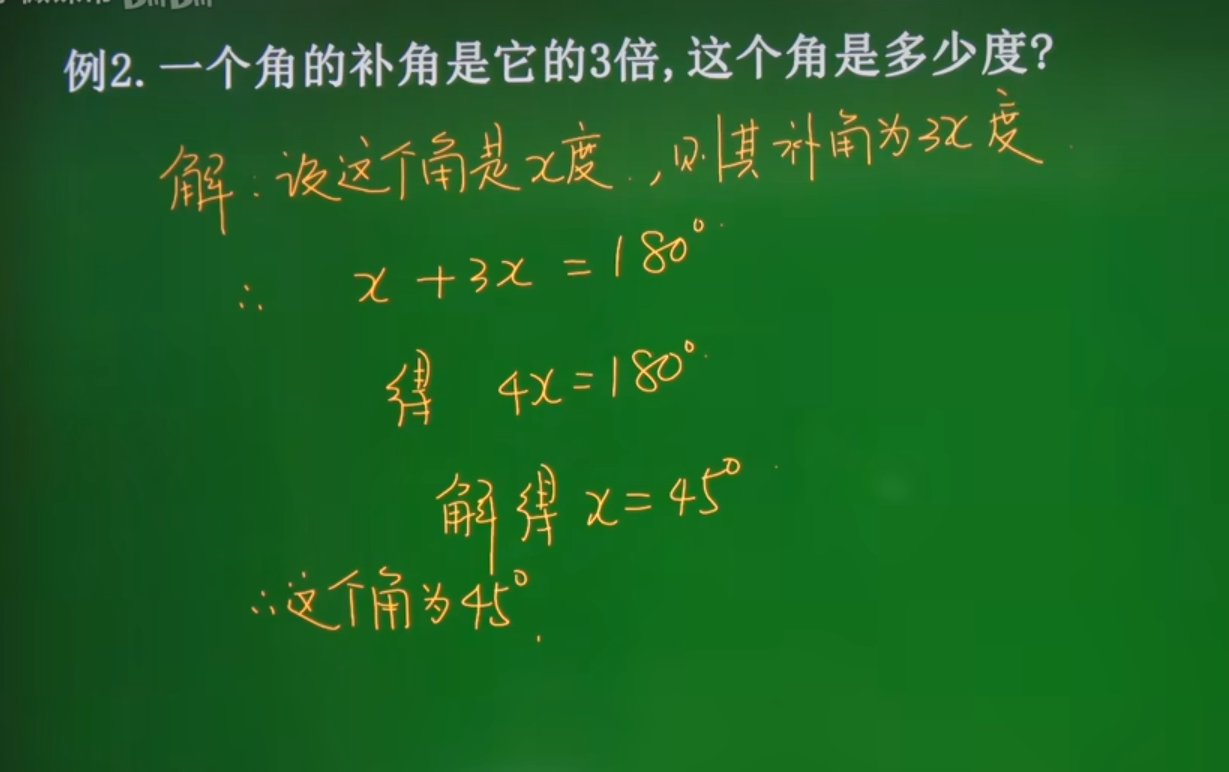 例2. 一个角的补角是它的3倍, 这个角是多少度?
解: 设这个角是x度, 则其补角为3x度.
∴ x+3x=180°
得 4x=180°
解得 x=45°
∴这个角为45°.